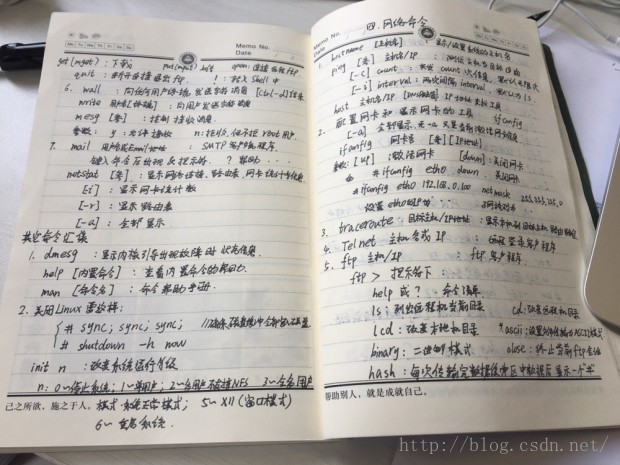 Memo No.
Date
get(mget)：下载 put(mput)：上传 open：连接远程ftp
quit：断开连接退出ftp ！：转入shell中
6. wall：向任何用户终端发送字符消息 [ctrl-d]结束
write 用户[终端]：向用户发送字符消息
mesg [参]：控制接收消息
参数：y：允许接收 n：拒收，但不拒root用户
7. mail 用户名或Email地址：SMTP客户端程序
键入命令后出现&提示符，？帮助....
netstat [参]：显示网络连接、路由表、网卡统计等信息
[-i]：显示网卡统计数
[-r]：显示路由表
[-a]：全部显示
其它命令汇集
1. dmesg：显示内核引导出现故障时状态信息
help [内置命令]：查看内置命令的帮助
man [命令名]：命令帮助手册
2. 关闭Linux需这样：
# sync; sync; sync;
# shutdown -h now
init n：改变系统运行等级
n：0～停止系统；1～单用户；2～多用户不支持NFS 3～全多用户
己之所欲，施之于人。 模式·系统正常模式；5～X11（窗口模式）
6～重启系统．
Memo No.
Date
四. 网络命令
1. hostname [主机名]：显示/设置系统的主机名
ping [参] 主机名/IP：测试主机是否
[-c] count：发出count次信息，
[-i] interval：两次间隔interval秒，默认为1s
host 主机名/IP
2. 配置网卡和显示网卡的工具 ifconfig
[-a] 全部显示
ifconfig 网卡号 [参] [IP地址]
参数：[up]：激活网卡 [down]：关闭网卡
如 #ifconfig eth0 down 关闭网卡
#ifconfig eth0 192.168.0.100 netmask 255.255.255.0
设置eth0的IP
3. traceroute 目标主机/IP地址：显示本机到目标主机
4. Telnet 主机名或IP：远程登录客户程序
5. ftp 主机/IP：ftp客户程序
ftp > 提示符下：
help 或？：命令清单
ls：列出远程机当前目录 cd：改变远程机目录
lcd：改变本地机目录 *ascii：设置文件传输为ASCII模式
binary：二进制模式 close：终止当前ftp会话
hash：每次传输完数据缓冲区中数据后显示一个#
帮助别人，就是成就自己。
http://blog.csdn.net/